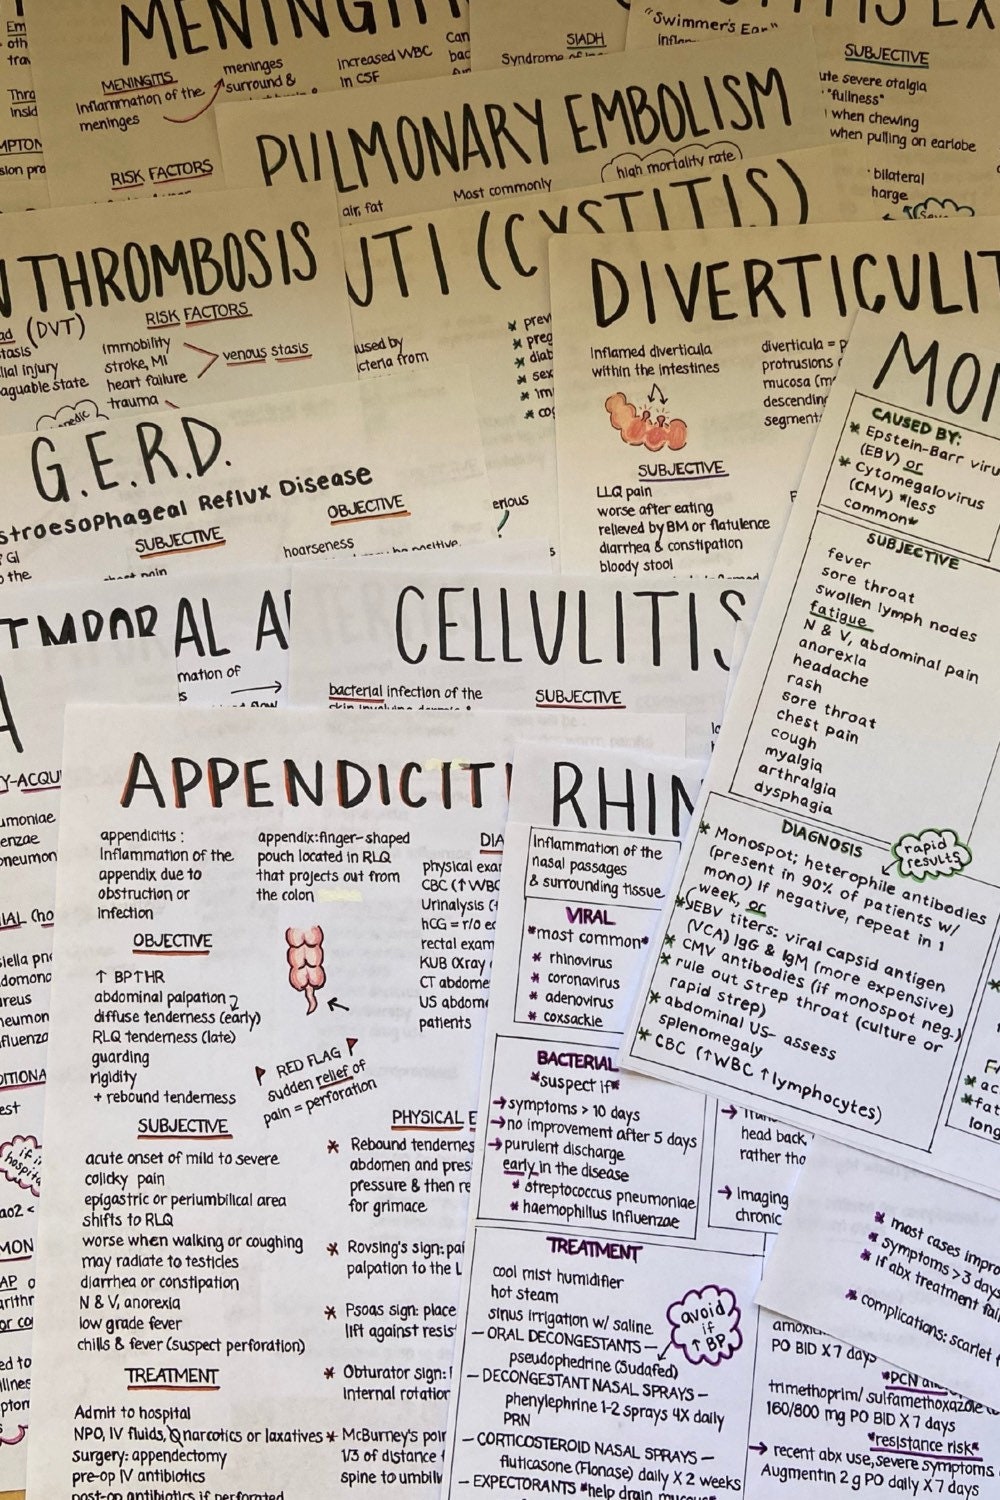 MENINGITI
MENINGITIS
Inflammation of the
meninges
meninges
surround &
Increased WBC
in CSF
RISK FACTORS
SIADH
Syndrome of
"Swimmer's Ear"
SUBJECTIVE
ute severe otalgia
"fullness"
when chewing
when pulling on earlobe
bilateral
harge
PULMONARY EMBOLISM
high mortality rate
air, fat
Most commonly
THROMBOSIS
(DVT)
RISK FACTORS
tasis
lial injury
aguable state
immobility
stroke, MI
heart failure
trauma
venous stasis
UTI (CYSTITIS)
used by
cteria from
prev
preg
diab
sex
im
DIVERTICULIT
Inflamed diverticula
within the intestines
diverticula = p
protrusions
mucosa (m
descending
segment
SUBJECTIVE
LLQ pain
worse after eating
relieved by BM or flatulence
diarrhea & constipation
bloody stool
G.E.R.D.
stroesophageal Reflux Disease
SUBJECTIVE
OBJECTIVE
hoarseness
erious
MON
CAUSED BY:
* Epstein-Barr viru
(EBV) or
* Cytomegalovirus
(CMV) *less
common*
SUBJECTIVE
fever
sore throat
swollen lymph nodes
fatigue
N & V, abdominal pain
anorexia
headache
rash
sore throat
chest pain
cough
myalgia
arthralgia
dysphagia
DIAGNOSIS
rapid
results
* Monospot; heterophile antibodies
(present in 90% of patients w/
mono) If negative, repeat in 1
week, or
* EBV titers: viral capsid antigen
(VCA) IgG & IgM (more expensive)
* CMV antibodies (if monospot neg.)
* rule out strep throat (culture or
rapid strep)
* abdominal US- assess
splenomegaly
* CBC (↑WBC ↑lymphocytes)
AL A
mation of
CELLULITIS
bacterial infection of the
SUBJECTIVE
Y-ACQU
APPENDICITI
appendicitis :
Inflammation of the
appendix due to
obstruction or
infection
appendix: finger-shaped
pouch located in RLQ
that projects out from
the colon
DIA
physical exam
CBC (↑WBC
Urinalysis (+
hCG = r/o ec
rectal exam
KUB (Xray
CT abdome
US abdome
patients
OBJECTIVE
↑ BPTHR
abdominal palpation
diffuse tenderness (early)
RLQ tenderness (late)
guarding
rigidity
+ rebound tenderness
RED FLAG
sudden relief of
pain = perforation
SUBJECTIVE
acute onset of mild to severe
colicky pain
epigastric or periumbilical area
shifts to RLQ
worse when walking or coughing
may radiate to testicles
diarrhea or constipation
N & V, anorexia
low grade fever
chills & fever (suspect perforation)
TREATMENT
Admit to hospital
NPO, IV fluids, narcotics or laxatives
surgery: appendectomy
pre-op IV antibiotics
post-op antibiotics if perforated
PHYSICAL E
* Rebound tendernes
abdomen and pres
pressure & then re
for grimace
* Rovsing's sign: pai
palpation to the L
* Psoas sign: place
lift against resis
* Obturator sign: I
internal rotation
* McBurney's poin
1/3 of distance f
spine to umbilic
RHIN
Inflammation of the
nasal passages
& surrounding tissue
VIRAL
*most common*
* rhinovirus
* coronavirus
* adenovirus
* coxsackie
BACTERIAL
*suspect if*
→ symptoms > 10 days
→ no improvement after 5 days
→ purulent discharge
early in the disease
* streptococcus pneumoniae
* haemophillus influenzae
head back,
rather tha
→ Imaging
chronic
TREATMENT
cool mist humidifier
hot steam
sinus irrigation w/ saline
— ORAL DECONGESTANTS —
pseudophedrine (Sudafed)
avoid
if
↑ BP
— DECONGESTANT NASAL SPRAYS —
phenylephrine 1-2 sprays 4X daily
PRN
— CORTICOSTEROID NASAL SPRAYS —
fluticasone (Flonase) daily X 2 weeks
— EXPECTORANTS *help drain mucous*
* most cases impro
* symptoms > 3 days
* if abx treatment fail
* complications: scarlet f
PO BID X 7 days
*PCN
trimethoprim/ sulfamethoxazole
160/800 mg PO BID X 7 days
*resistance risk*
→ recent abx use, severe symptoms
Augmentin 2 g PO daily X 7 days